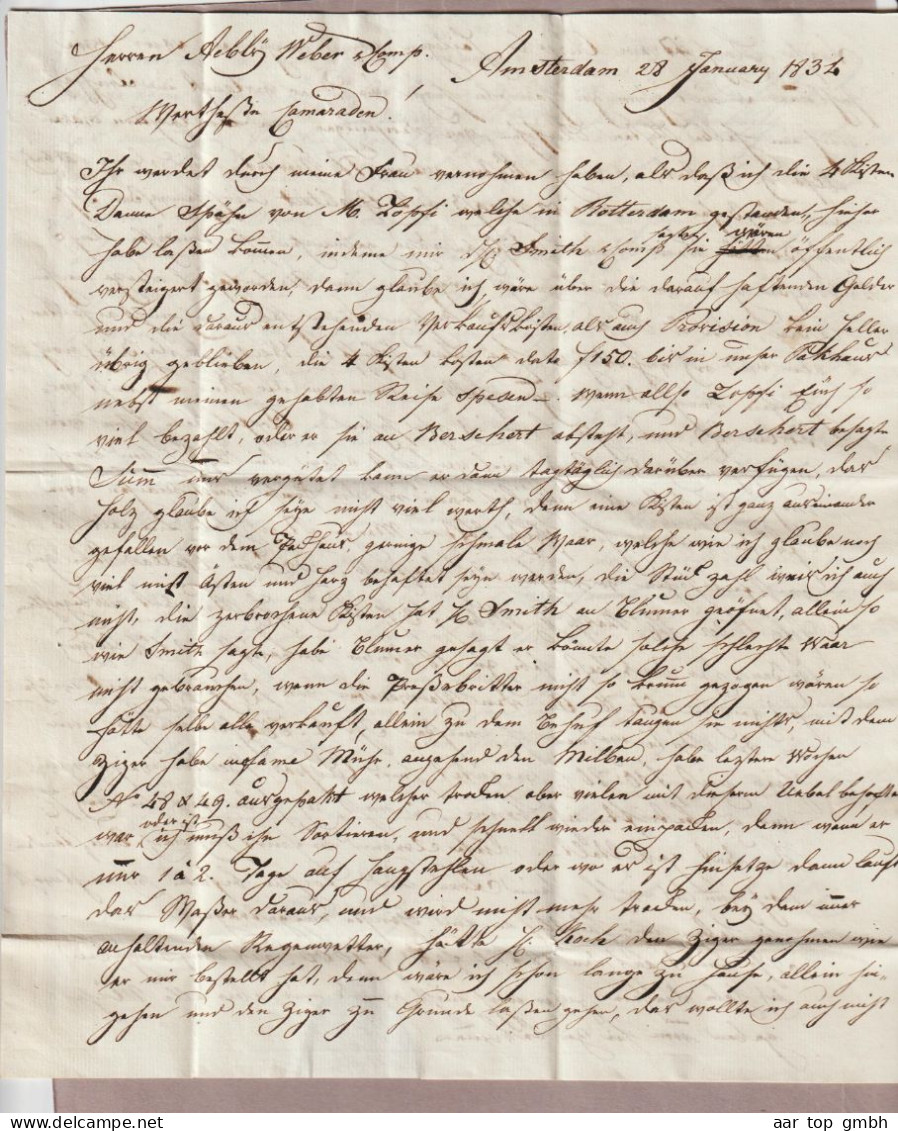 Herren Aebly Weber & Comp.
Amsterdam 28 January 1834
Werthe Camaraden!
Ihr werdet durch meine Frau vernohmen haben, als daß ich die 4 Kisten
Danne Spähn von M. Zopfi welche in Rotterdam gestanden, hieher
habe laßen komen, indeme mir H. Smith & Comp sagte, sie wären öffentlich
versteigert geworden, dann glaube ich wäre über die darauf haftenden Gelder
und die daraus entstehenden Verkaufs Kosten, als auch Provision kein Heller
übrig geblieben, die 4 Kisten kosten dato f 150. bis in unser Pakhaus
nebst meinen gehabten Reise Spesen. wenn allso Zopfi Euch so
viel bezahlt, oder er sie an Berschert absteht, und Berschert besagte
Sum uns vergütet kann er dann tagtäglich darüber verfügen, das
Holz glaube ich seye nicht viel werth, denn eine Kisten ist ganz auseinander
gefallen vor dem Pakhaus, schmale Waar, welche wie ich glaube noch
viel mit Ästen und Harz behaftet seyn werden, die Stük zahl weis ich auch
nicht, die zerbrochene Kisten hat H. Smith an Blumer geöfnet, allein so
wie Smith sagte, habe Blumer gesagt er könnte solche schlechte Waar
nicht gebrauchen, wenn die Preßbritter nicht so krum gezogen wären so
hätte selbe alle verkauft, allein zu dem Behuf taugen sie nichts, mit dem
Ziger habe Mühe, angehend den Milben, habe leztere Wochen
No 48 & 49. ausgepakt welcher troken aber vielen mit diesem Uebel behaftet
war oder ist, ich muß ihn Sortieren, und schnell wieder einpaken, denn wenn er
nur 1 à 2. Tage auf oder wo er ist hinsetze dann lauft
das Waßer daraus, und wird nicht mehr troken, bey dem imer
anhaltenden Regenwetter, hätte H. Koch den Ziger genohmen wie
er mir bestellt hat, denn wäre ich schon lange zu Hause, allein hin-
gehen und den Ziger zu Grunde laßen gehen, das wollte ich auch nicht
aar top gmbh